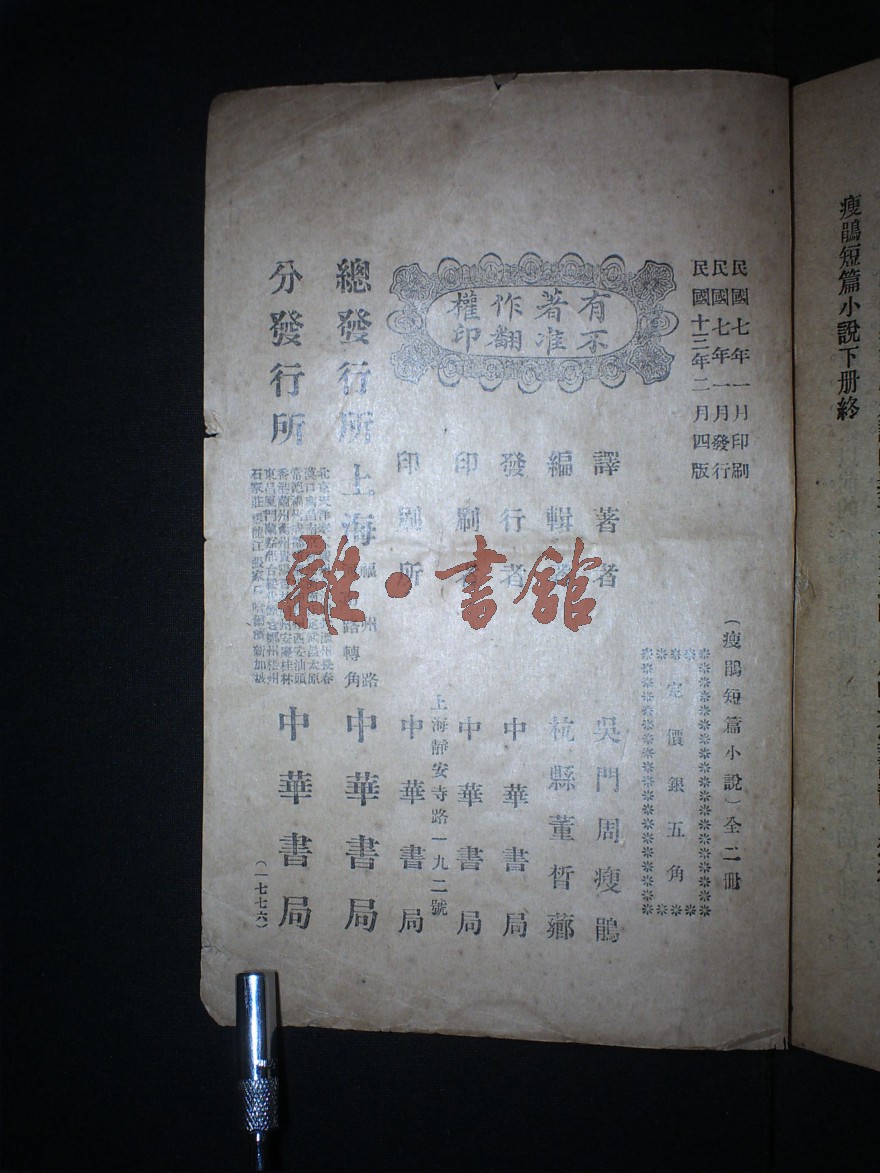 瘦鵑短篇小說下册終
民國七年一月印刷
民國七年一月發行
民國十三年二月四版
(瘦鵑短篇小說)全二册
定價銀五角
有著作權
不准翻印
譯著者 吳門周瘦鵑
編輯者 杭縣董晳薌
發行者 中華書局
印刷者 中華書局
上海靜安寺路一九二號
印刷所 中華書局
總發行所 上海 福州路 路轉角 中華書局
分發行所
中華書局
(一七七六)
雜·書館